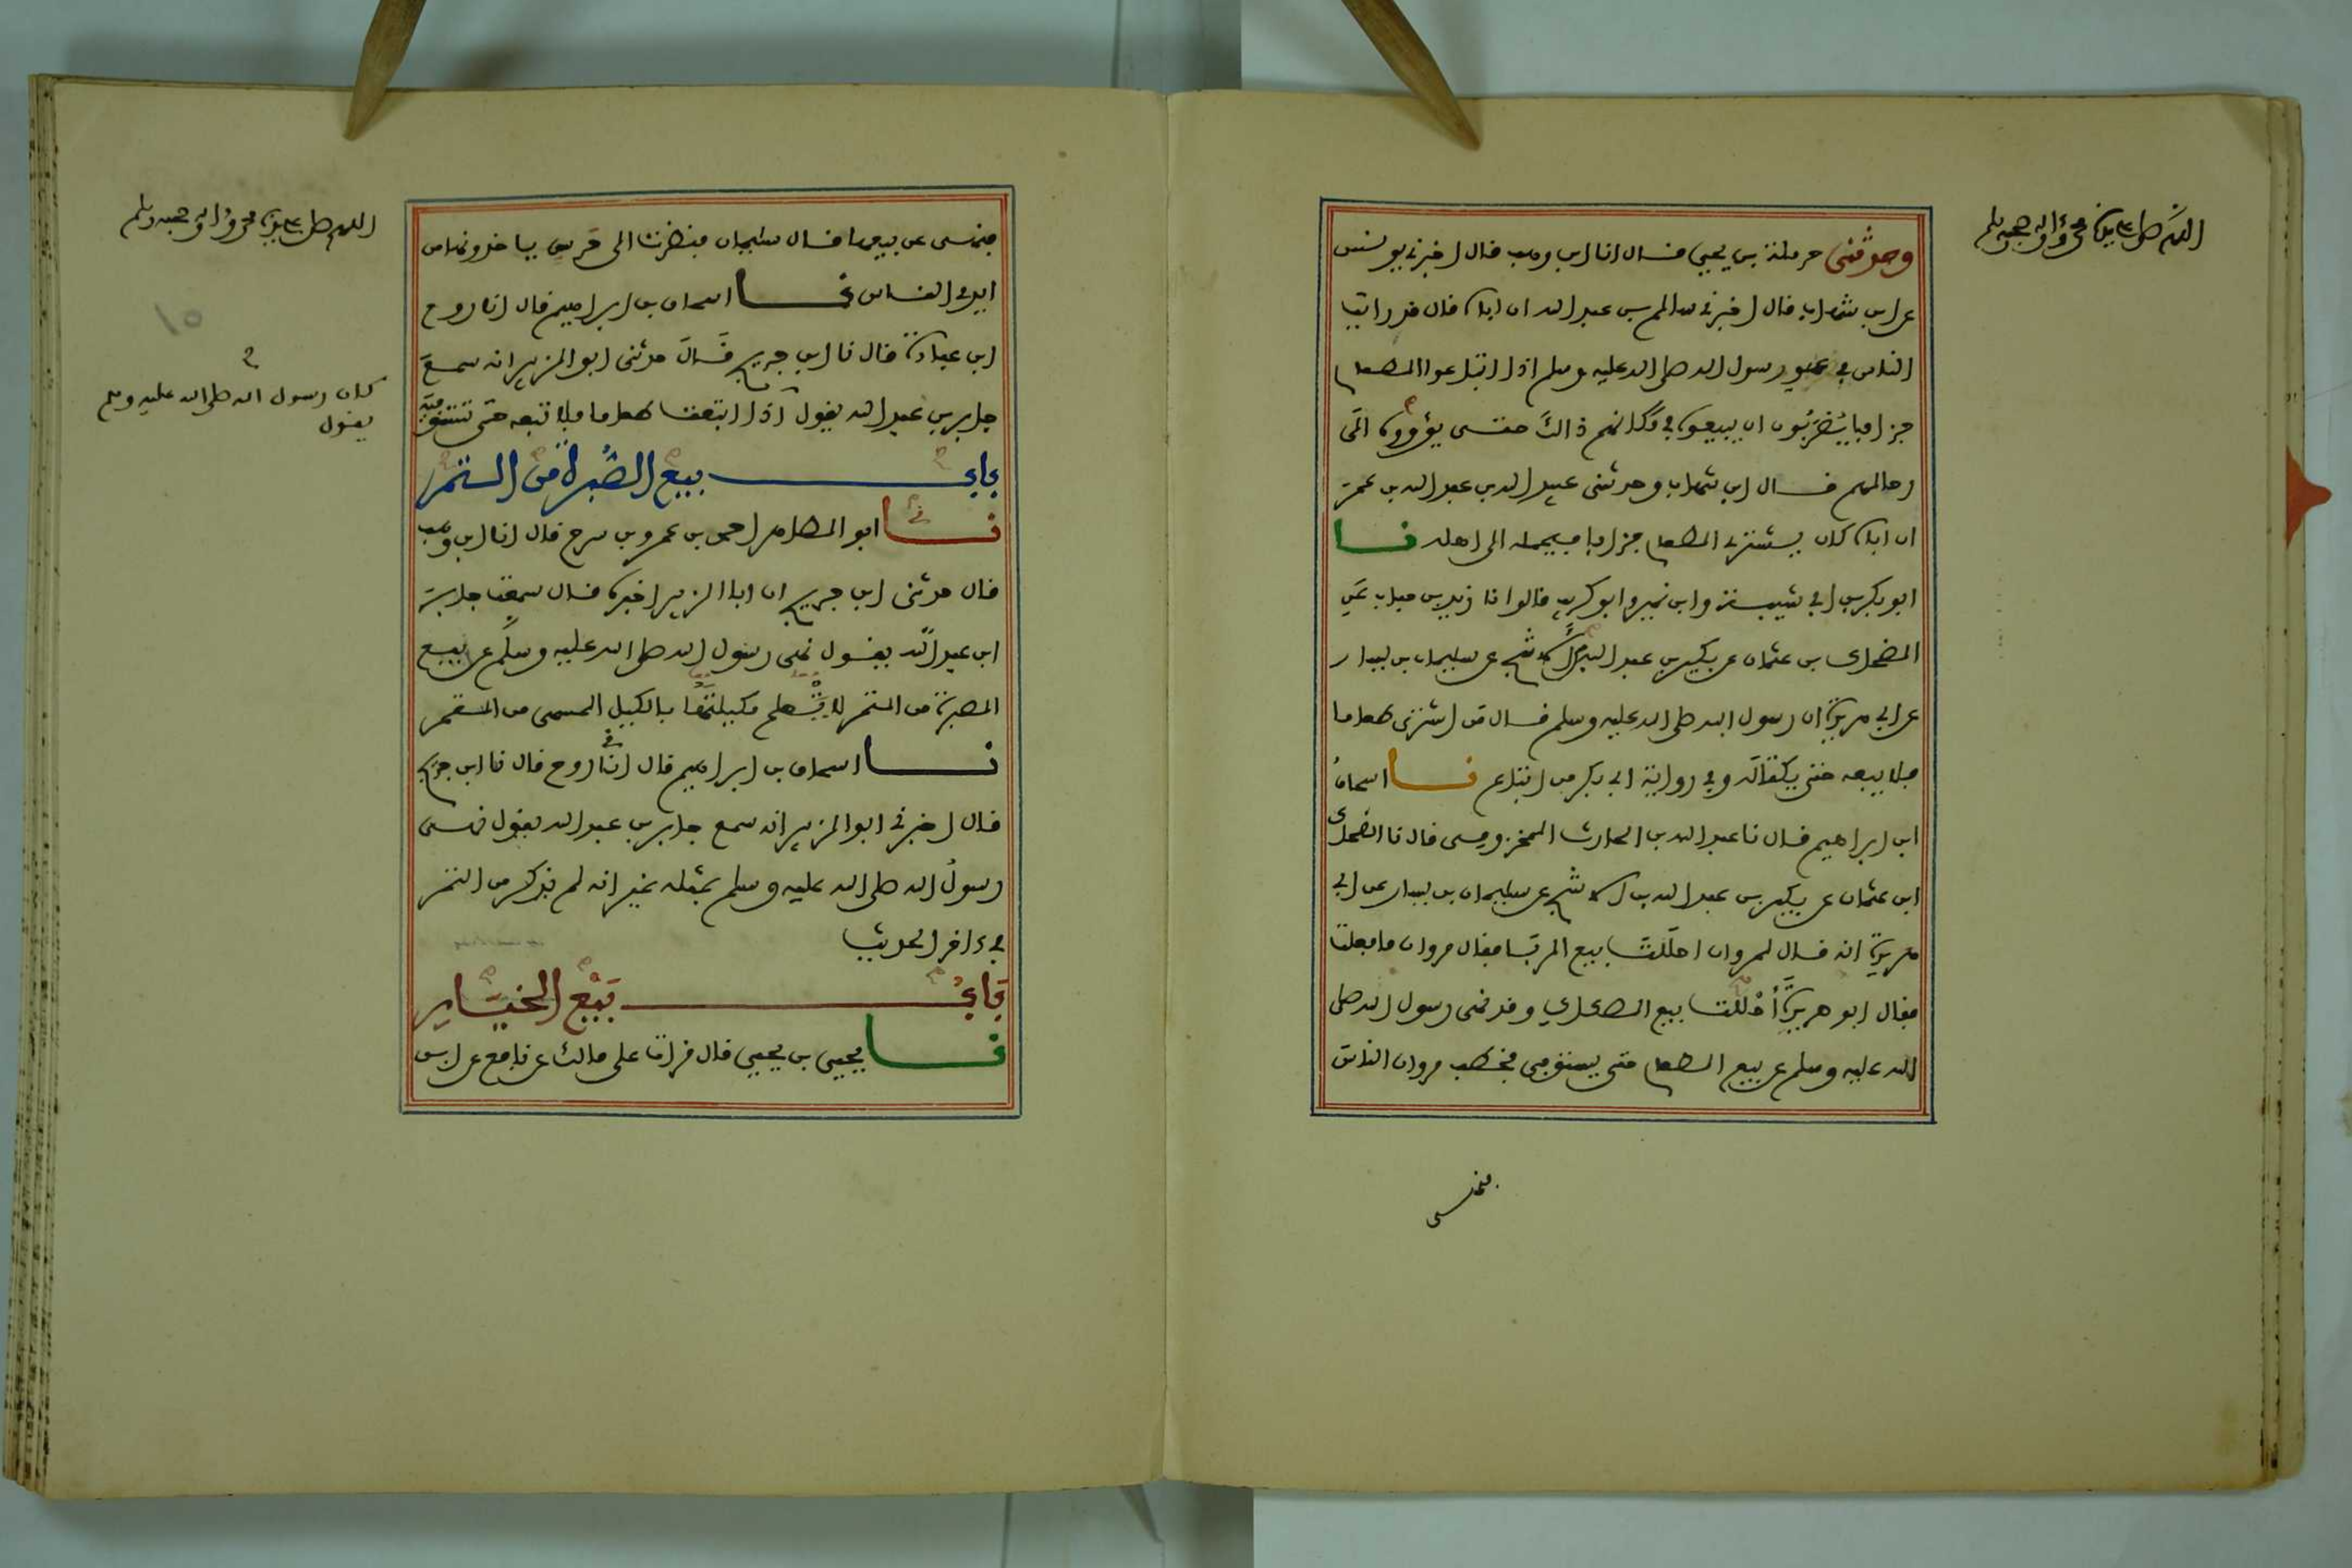 اللهم صل على سيدنا محمد وآله وصحبه وسلم
وحدثني حرملة بن يحيى قال انا ابن وهب قال اخبرني يونس
عن ابن شهاب قال اخبرني سالم بن عبد الله ان اباه قال قد رايت
الناس في عهد رسول الله صلى الله عليه وسلم اذا ابتاعوا الطعام
جزافا يُضْرَبُون ان يبيعوه في مَكانهم ذالك حتى يؤووه الى
رحالهم قال ابن شهاب وحدثني عبيد الله بن عبد الله بن عمر
ان اباه كان يشتري الطعام جزافا فيحمله الى اهله نا
ابو بكر بن ابي شيبة وابن نمير وابو كريب قالوا نا زيد بن حباب عن
الضحاك بن عثمان عن بكير بن عبد الله بن الاشج عن سليمان بن يسار
عن ابي هريرة ان رسول الله صلى الله عليه وسلم قال من اشترى طعاما
فلا يبعه حتى يكتاله وفي رواية ابي بكر من ابتاع نا اسحاق
ابن ابراهيم قال نا عبد الله بن الحارث المخزومي قال نا الضحاك
ابن عثمان عن بكير بن عبد الله بن الاشج عن سليمان بن يسار عن ابي
هريرة انه قال لمروان احللت بيع الربا فقال مروان ما فعلت
فقال ابو هريرة أحللت بيع الصكاك وقد نهى رسول الله صلى
الله عليه وسلم عن بيع الطعام حتى يستوفى فخطب مروان الناس
فنهى
اللهم صل على سيدنا محمد وآله وصحبه وسلم
فنهى عن بيعها قال سليمان فنظرت الى حرس ياخذونها من
ايدي الناس نا اسحاق بن ابراهيم قال انا روح
ابن عبادة قال نا ابن جريج قال حدثني ابو الزبير انه سمع
جابر بن عبد الله يقول اذا ابتعت طعاما فلا تبعه حتى تستوفيه
كان رسول الله صلى الله عليه وسلم
يقول
باب بيع الصُبرة من التمر
نا ابو الطاهر احمد بن عمرو بن سرح قال انا ابن وهب
قال حدثني ابن جريج ان ابا الزبير اخبره قال سمعت جابر
ابن عبد الله يقول نهى رسول الله صلى الله عليه وسلم عن بيع
الصبرة من التمر لا يعلم مكيلتها بالكيل المسمى من التمر
نا اسحاق بن ابراهيم قال انا روح قال نا ابن جريج
قال اخبرني ابو الزبير انه سمع جابر بن عبد الله يقول نهى
رسول الله صلى الله عليه وسلم بمثله غير انه لم يذكر من التمر
في ءاخر الحديث
بَابُ بَيْع الخيَار
نا يحيى بن يحيى قال قرات على مالك عن نافع عن ابن